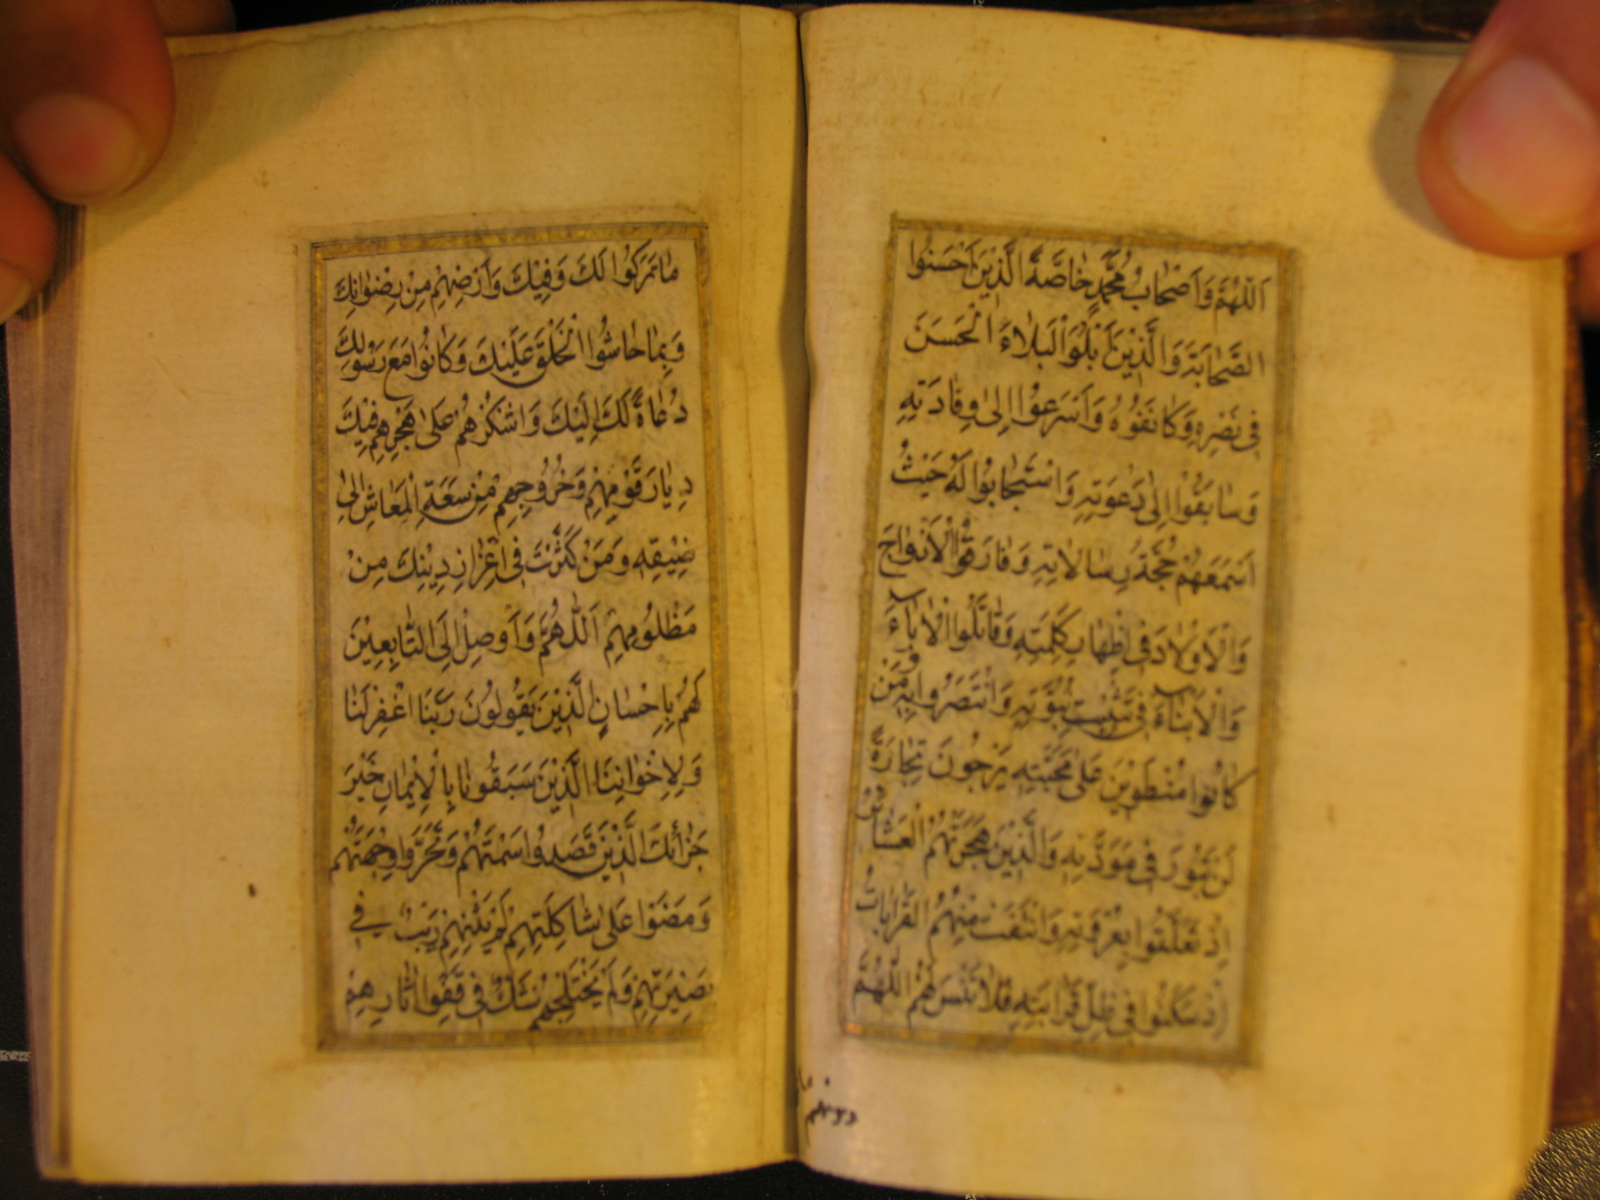 اَللّٰهُمَّ وَاَصْحَابُ مُحَمَّدٍ خَاصَّةً الَّذِيْنَ اَحْسَنُوا
الصَّحَابَةَ وَالَّذِيْنَ اَبْلَوُا الْبَلَاءَ الْحَسَنَ
فِى نَصْرِهِ وَكَانَفُوهُ وَاَسْرَعُوْا اِلٰى وِفَادَتِهِ
وَسَابَقُوْا اِلٰى دَعْوَتِهِ وَاسْتَجَابُوْا لَهُ حَيْثُ
اَسْمَعَهُمْ حُجَّةَ رِسَالَاتِهِ وَفَارَقُوا الْاَزْوَاجَ
وَالْاَوْلَادَ فِى اِظْهَارِ كَلِمَتِهِ وَقَاتَلُوا الْاٰبَاءَ
وَالْاَبْنَاءَ فِى تَثْبِيْتِ نُبُوَّتِهِ وَانْتَصَرُوا بِهِ وَمَنْ
كَانُوا مُنْطَوِيْنَ عَلٰى مَحَبَّتِهِ يَرْجُوْنَ تِجَارَةً
لَنْ تَبُوْرَ فِى مَوَدَّتِهِ وَالَّذِيْنَ هَجَرَتْهُمُ الْعَشَائِرُ
اِذْ تَعَلَّقُوا بِعُرْوَتِهِ وَانْتَفَتْ مِنْهُمُ الْقَرَابَاتُ
اِذْ سَكَنُوا فِى ظِلِّ قَرَابَتِهِ فَلَا تَنْسَ لَهُمُ اللّٰهُمَّ
مَا تَرَكُوْا لَكَ وَفِيْكَ وَاَرْضِهِمْ مِنْ رِضْوَانِكَ
وَبِمَا حَاشُوا الْخَلْقَ عَلَيْكَ وَكَانُوْا مَعَ رَسُوْلِكَ
دُعَاةً لَكَ اِلَيْكَ وَاشْكُرْهُمْ عَلٰى هَجْرِهِمْ فِيْكَ
دِيَارَ قَوْمِهِمْ وَخُرُوْجِهِمْ مِنْ سَعَةِ الْمَعَاشِ اِلٰى
ضِيْقِهِ وَمَنْ كَثَّرْتَ فِى اِعْزَازِ دِيْنِكَ مِنْ
مَظْلُوْمِهِمْ اَللّٰهُمَّ وَاَوْصِلْ اِلَى التَّابِعِيْنَ
لَهُمْ بِاِحْسَانٍ الَّذِيْنَ يَقُوْلُوْنَ رَبَّنَا اغْفِرْ لَنَا
وَلِاِخْوَانِنَا الَّذِيْنَ سَبَقُوْنَا بِالْاِيْمَانِ خَيْرَ
جَزَائِكَ الَّذِيْنَ قَصَدُوْا سَمْتَهُمْ وَتَحَرَّوْا وِجْهَتَهُمْ
وَمَضَوْا عَلٰى شَاكِلَتِهِمْ لَمْ يَثْنِهِمْ رَيْبٌ فِى
بَصِيْرَتِهِمْ وَلَمْ يَخْتَلِجْهُمْ شَكٌّ فِى قَفْوِ اٰثَارِهِمْ